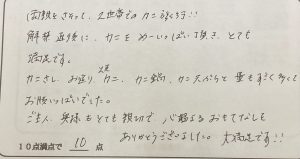 両親をさそって、2世帯での カニ
解禁直後に、カニを めーいっぱい頂き、とても
満足です。
カニさし、お造り、カニ、カニ鍋、カニ天ぷらと 量もすごく多くて
お腹いっぱいでした。
ご主人、奥様もとても親切で、心温まる おもてなしを
ありがとうございました。大満足です!!
10点満点で 10 点